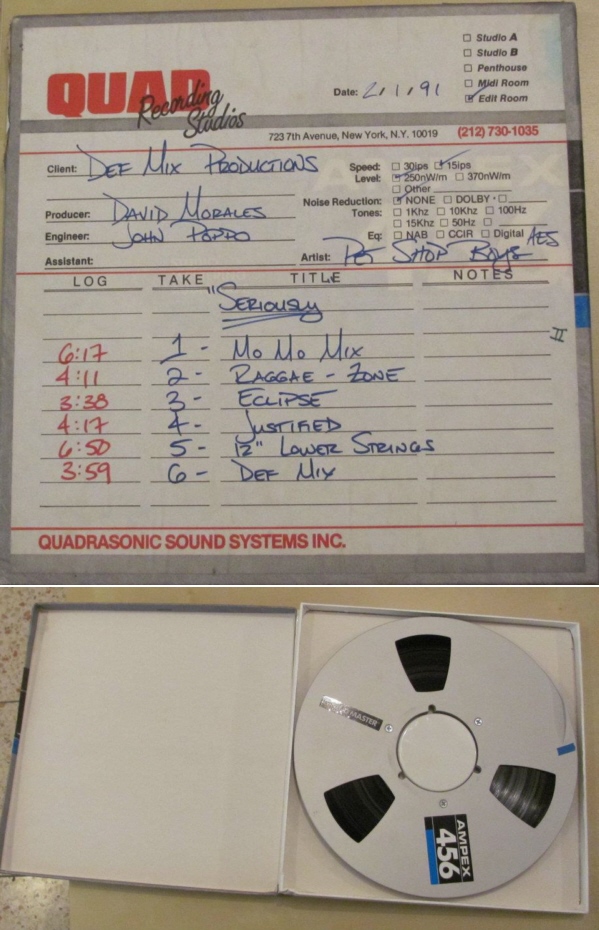 QUAD
Recording
Studios
Date: 2/1/91
Studio A
Studio B
Penthouse
Midi Room
Edit Room
723 7th Avenue, New York, N.Y. 10019 (212) 730-1035
Client: DEF MIX PRODUCTIONS
Speed: 30ips 15ips
Level: 250nW/m 370nW/m
Other
Noise Reduction: NONE DOLBY
Producer: DAVID MORALES
Tones: 1Khz 10Khz 100Hz
15Khz 50Hz
Engineer: JOHN POPPO
Eq: NAB CCIR Digital AES
Assistant:
Artist: PET SHOP BOYS
LOG TAKE TITLE NOTES
"SERIOUSLY
II
6:17 1 - MO MO MIX
4:11 2 - RAGGAE - ZONE
3:38 3 - ECLIPSE
4:17 4 - JUSTIFIED
6:50 5 - 12" LOWER STRINGS
3:59 6 - DEF MIX
QUADRASONIC SOUND SYSTEMS INC.
MASTER
AMPEX
456